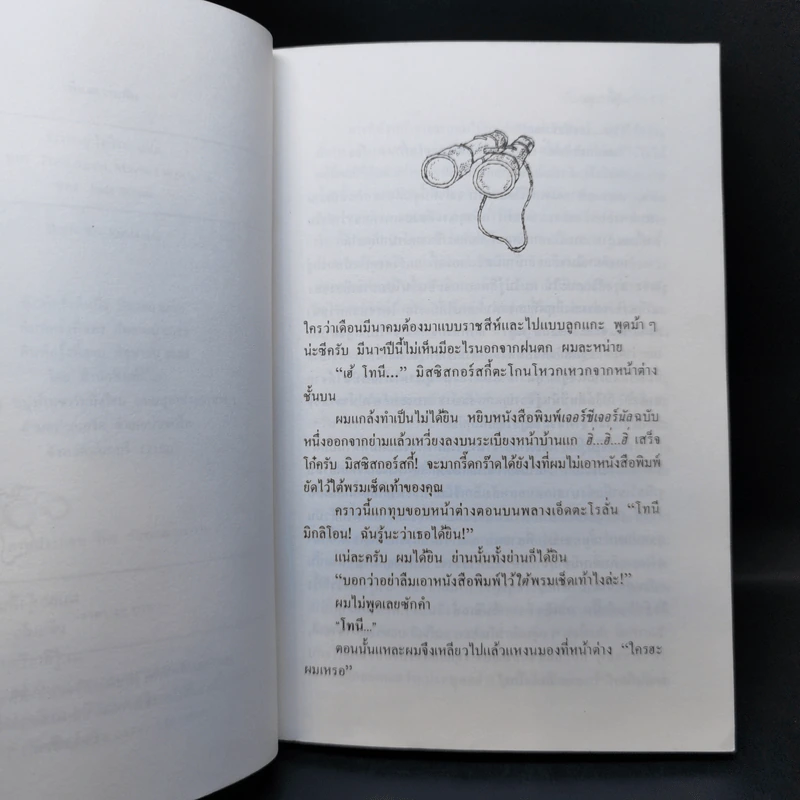 ใครว่าเดือนมีนาคมต้องมาแบบราชสีห์และไปแบบลูกแกะ พูดม้าๆ
น่ะซีครับ มีนาฯปีนี้ไม่เห็นมีอะไรนอกจากฝนตก ผมละหน่าย
“เฮ้ โทนี...” มิสซิสกอร์สกี้ตะโกนโหวกเหวกจากหน้าต่าง
ชั้นบน
ผมแกล้งทำเป็นไม่ได้ยิน หยิบหนังสือพิมพ์เจอร์ซีเจอร์นัลฉบับ
หนึ่งออกจากย่ามแล้วเหวี่ยงลงบนระเบียงหน้าบ้านแก ฮี่...ฮี่...ฮี่ เสร็จ
โก๋ครับ มิสซิสกอร์สกี้! จะมากรี๊ดกร๊าดได้ยังไงที่ผมไม่เอาหนังสือพิมพ์
ยัดไว้ใต้พรมเช็ดเท้าของคุณ
คราวนี้แกทุบขอบหน้าต่างตอนบนพลางเอ็ดตะโรลั่น “โทนี
มิกลิโอน! ฉันรู้นะว่าเธอได้ยิน!”
แน่ละครับ ผมได้ยิน ย่านนั้นทั้งย่านก็ได้ยิน
“บอกว่าอย่าลืมเอาหนังสือพิมพ์ไว้ใต้พรมเช็ดเท้าไงล่ะ!”
ผมไม่พูดเลยซักคำ
"โทนี..."
ตอนนั้นแหละผมจึงเหลียวไปแล้วแหงนมองที่หน้าต่าง “ใครฮะ
ผมเหรอ”